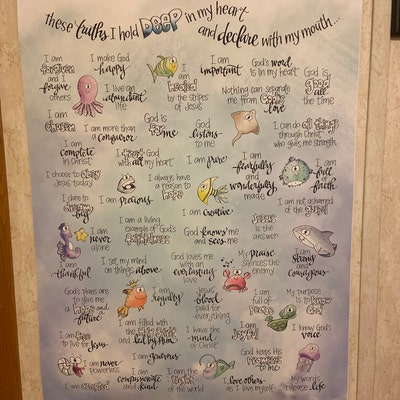 These truths I hold DEEP in my heart
and declare with my mouth...
I am forgiven and I forgive others
I make God happy
I am healed by the stripes of Jesus
I am important
God's word is in my heart
God is good all the time
I live an abundant life
Nothing can separate me from God's love
I am chosen
I am more than a conqueror
God is for me
God listens to me
I can do all things through Christ who gives me strength
I am complete in Christ
I trust God with all my heart
I am pure
I am fearfully and wonderfully made
I am full of faith
I choose to obey Jesus today
I always have a reason to hope
I dare to dream big
I am precious
I am creative
I am not ashamed of the gospel
I am never alone
I am a living example of God's faithfulness
God knows me and sees me
Jesus is the answer
I am thankful
I set my mind on things above
God loves me with an everlasting love
My praise silences the enemy
I am strong and courageous
God's plans are to give me a hope and a future
I am royalty
Jesus' blood paid for everything
I am full of
My purpose is to
I am to live for Jesus
I am filled with the and led by Him
I have the mind of Christ
I am joyful
I know God's voice
I am never powerless
I am generous
God keeps His promises to me
I am
I am compassionate and kind
I am the light of the world
I love others as I love myself
My words release life